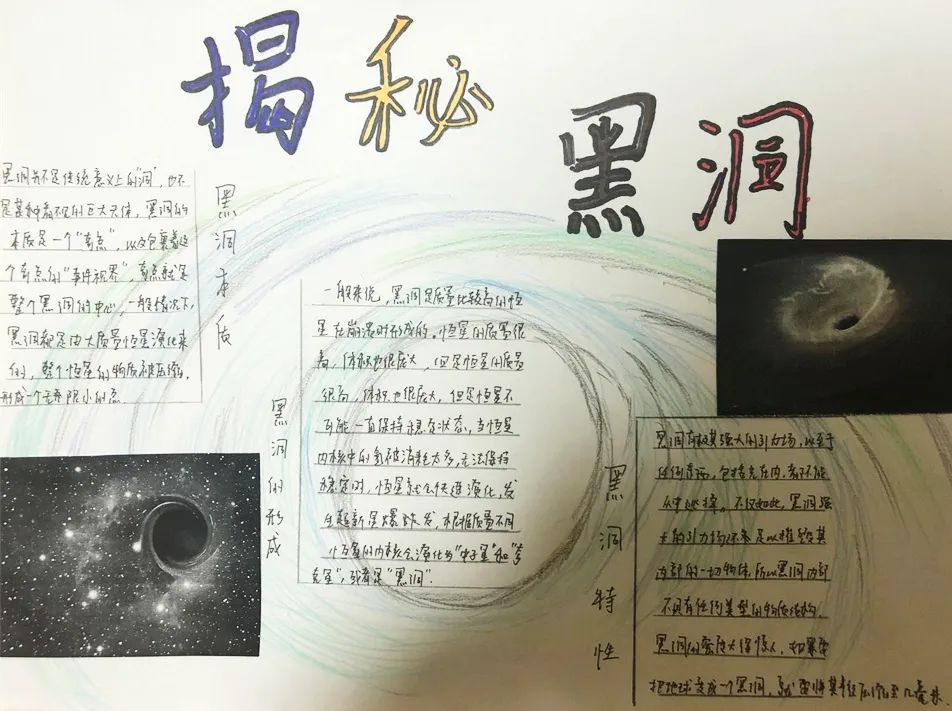 揭秘
黑洞
黑洞本质
黑洞并不是传统意义上的"洞"，也不
是某种看不见的巨大天体，黑洞的
本质是一个"奇点"，以及包裹着这
个奇点的"事件视界"，奇点就是
整个黑洞的中心，一般情况下，
黑洞都是由大质量恒星演化来
的，整个恒星的物质被压缩，
形成一个无限小的点
黑洞的形成
一般来说，黑洞是质量比较高的恒
星在崩溃时形成的。恒星的质量很
高，体积也很庞大，但是恒星的质量
很高，体积也很庞大，但是恒星不
可能一直保持稳态状态，当恒星
内核中的氢被消耗太多，无法保持
稳定时，恒星就会快速演化，发
生超新星爆炸发，根据质量不同
恒星的内核会演化为"中子星"和"夸
克星"，或者是"黑洞"
黑洞特性
黑洞有极其强大的引力场，以至于
任何东西，包括光在内，都不能
从中逃掉。不仅如此，黑洞强
大的引力场还来足以摧毁其
内部的一切物体，所以黑洞内部
不具有任何类型的物质结构，
黑洞的密度大得惊人，如果要
把地球变成一个黑洞，就需将其半径压缩至几毫米